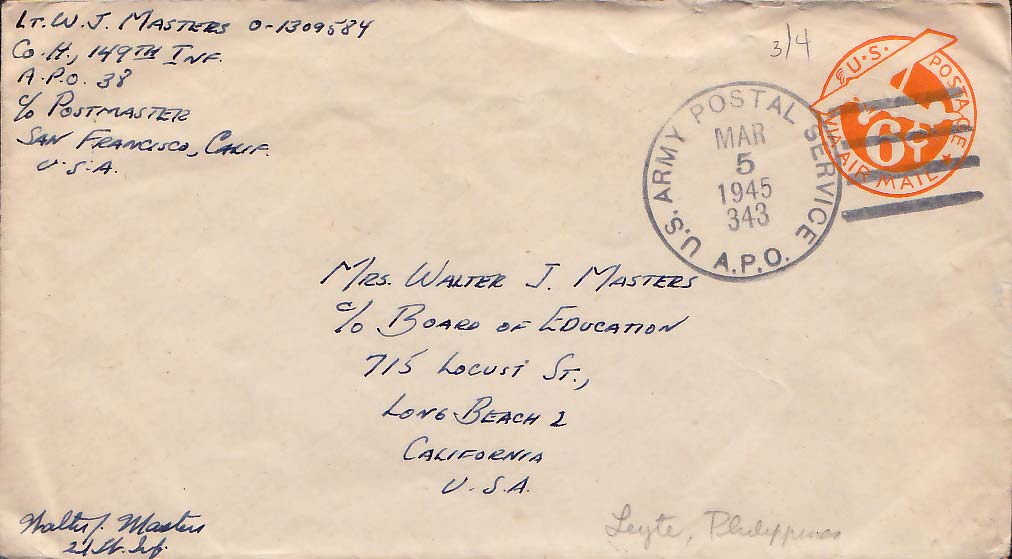 LT. W. J. MASTERS O-1309584
CO. H., 149TH INF.
A.P.O. 38
c/o POSTMASTER
SAN FRANCISCO, CALIF.
U.S.A.
3/4
U.S. POSTAGE
6¢
VIA AIR MAIL
U.S. ARMY POSTAL SERVICE
MAR
5
1945
343
A.P.O.
MRS. WALTER J. MASTERS
c/o BOARD OF EDUCATION
715 LOCUST ST.,
LONG BEACH 2
CALIFORNIA
U.S.A.
Walter J. Masters
2d Lt. Inf.
Leyte, Philippines